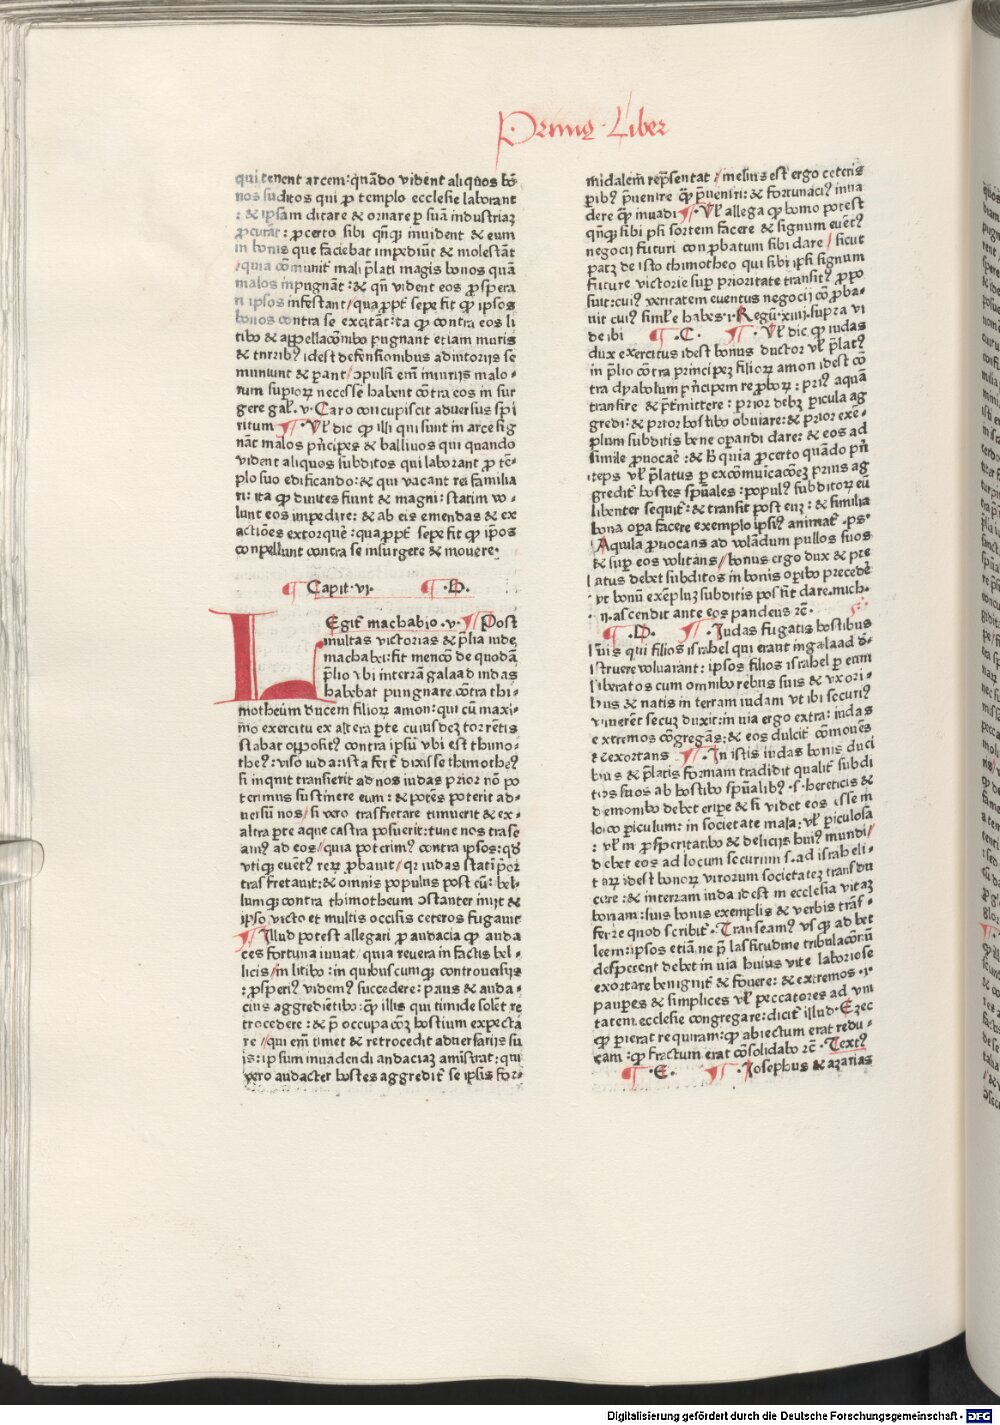 Primꝰ · Liber
qui tenent arcem: quãdo vident aliquos bõ
nos suditos qui ꝓ templo ecclesie laborant
: & ipsam ditare & ornare ꝑ suã industriaꝫ
ꝓcurãt: ꝓcerto sibi qñqꝫ inuident & eum
in bonis que faciebat impediũt & molestãt
/quia cõmunit̃ mali p̃lati magis bonos quã
malos inpugnãt: & qñ vident eos ꝓspera
ri ipsos infestant/quaꝓpt̃ sepe fit ꝙ ipsos
bonos contra se excitãt: ita ꝙ contra eos li
tibꝰ & appellacõnibꝰ pugnant etiam muris
& turribꝰ idest defensionibus adiutoriis se
muniunt & parant/ ↄpulsi em̃ iniuriis malo-
rum supioꝝ necesse habent cõtra eos in sur
gere gal̃. v. Caro concupiscit aduersus spi
ritum ¶ · Vl̃ dic ꝙ illi qui sunt in arce sig
nãt malos pñcipes & balliuos qui quando
vident aliquos subditos qui laborant ꝓ tẽ-
plo suo edificando: & qui vacant rei familia
ri: ita ꝙ diuites fiunt & magni: statim vo-
lunt eos impedire: & ab eis emendas & ex
actiões extorquẽ: quaꝓpt̃ sepe fit ꝙ ip̃os
conpellunt contra se insurgere & mouere·
¶ Capit·vi· ¶ ·B·
LEgit̃ machabio·v·¶Post
multas victorias & p̃lia iude
machabei: fit mencõ de quodã
p̃lio vbi interrã galaad iudas
habebat pungnare cõtra thi-
motheũm ducem filioꝝ amon: qui cũ maxi-
mo exercitu ex altera parte cuiusdeꝫ torrẽtis
stabat opposit9 contra ipsũ vbi est thimo-
the9: viso iuda rista fert̃ dixisse thimothe9
si inquit transierit ad nos iudas prior nõ po
terimus sustinere eum: & potẽs poterit ad-
uersũ nos/si vero trasfretare timuerit & ex-
altra parte aque castra posuerit: tunc nos trase
am9 ad eos/quia poterim9 contra ipsos: qd̃
vtiqꝫ euẽt9 rerꝫ ꝓbauit/qꝫ iudas statĩ p̃or
trasfretauit: & omnis populus post eũ: bel-
lumqꝫ contra thimotheum ↄstanter iniit &
ipso victo et multis occisis ceteros fugauit
¶Illud potest allegari ꝓ audacia ꝙ auda
ces fortuna iuuat/quia reuera in factis bel-
licis/in litibꝰ: in quibuscumqꝫ controuersiis
: ꝓsperi9 videm9 succedere: prius & auda-
cius aggredientibꝰ: ꝙ illis qui timide solẽt re
trocedere: & p̃ occupacõꝫ hostium expecta
re/qui em̃ timet & retrocedit aduersariis su
is: ipsum inuadendi audaciaꝫ amistrat: qui
vero audacter hostes aggredit̃ se ipsis for-
midalem rep̃sentat:/melius est ergo ceteris
paribꝰ p̃uenire ꝙ p̃ueniri: & fortunaci9 inua
dere ꝙ inuadi ¶· Vl̃ allega ꝙ homo potest
qñqꝫ sibi ip̃i sortem facere & signum euẽt9
negocii futuri conꝓbatum sibi dare/ sicut
patꝫ de isto thimotheo qui sibi ip̃i signum
future victorie super prioritate transit9 ꝓpo
suit: cui9 veritatem euentus negocii cõꝓba-
uit cui9 simile habes·i·Regũ·xiiij·supra vi
de ibi ¶ ·C· ¶ · Vl̃ dic ꝙ iudas
dux exercitus idest bonus ductor vl̃ p̃lat9
in p̃lio cõtra principeꝫ filioꝝ amon idest cõ
tra dyabolum pñcipem reꝓboꝝ: pri9 aquã
transire & p̃tmittere: prior debꝫ pericula ag
gredi: & prior hostibo obuiare: & prior exe-
plum subditis bene operandi dare: & eos ad
simile ꝓuocaẽ: & ħ quia ꝓcerto quãdo pñ
iteps vl̃ p̃latus ꝑ excõmuicacõeꝫ prius ag
gredit̃ hostes spũales: popul9 subditoꝝ eũ
libenter sequit̃: & transit post euꝫ: & similia
bona opera facere exemplo ipsi9 animat̃·ps·
Aquila ꝓuocans ad volãdum pullos suos
& super eos volitans/bonus ergo dux & pre
latus debet subditos in bonis operibo precedẽ
vt bonũ exẽpluꝫ subditis possit dare. mich·
·ii· ascendit ante eos pandens ꝛc̃·
¶ ·D· ¶ · Iudas fugatis hostibus
suis qui filios israhel qui erant in galaad d-
struere voluarant: ipsos filios israhel ꝑ eum
liberatos cum omnibo rebus suis & vxori-
bus & natis in terram iudam vt ibi securi9
viuerẽt secuꝫ duxit: in uia ergo extra: iudas
extremos cõgregãs: & eos dulcit̃ cõmouẽs
& exortans ¶· In istis iudas bonis duci
bus & p̃latis formam tradidit qualit̃ subdi
tos suos ab hostibo spũalib9·s· hereticis &
demonibo debet eripe & si videt eos esse in
loco periculum: in societate mala: vl̃ periculosa
: vl̃ in ꝓsperitatibo & deliciis hui9 mundi/
debet eos ad locum securum s. ad israheli-
taꝝ idest bonoꝝ virorum societateꝫ transdu
cere: & interram iuda idest in ecclesia vitaꝫ
bonam: suis bonis exemplis & verbis trãs-
ferre quod scribit̃·Transeam9 vsqꝫ ad bet
leem: ipsos etiã ne p̃ lassitudine tribulacõnũ
desperent debet in uia huius vite laboriose
exortare benignit̃ & fouere: & extremos·i·
pauperes & simplices vl̃ peccatores ad vni
tatem ecclesie congregare: dicit̃ illud·Ezec
ꝙ perierat requiram: ꝙ abiectum erat redu-
cam: ꝙ fractum erat cõsolidabo ꝛc̃·Text9
¶ ·E· ¶ ·Iosephus & azarias
Digitalisierung gefördert durch die Deutsche Forschungsgemeinschaft - DFG